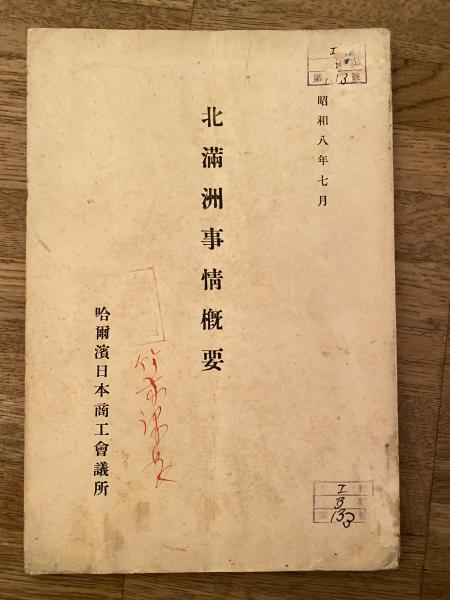 昭和八年七月
北滿洲事情概要
哈爾濱日本商工會議所
I
第 13 號
I
B
133